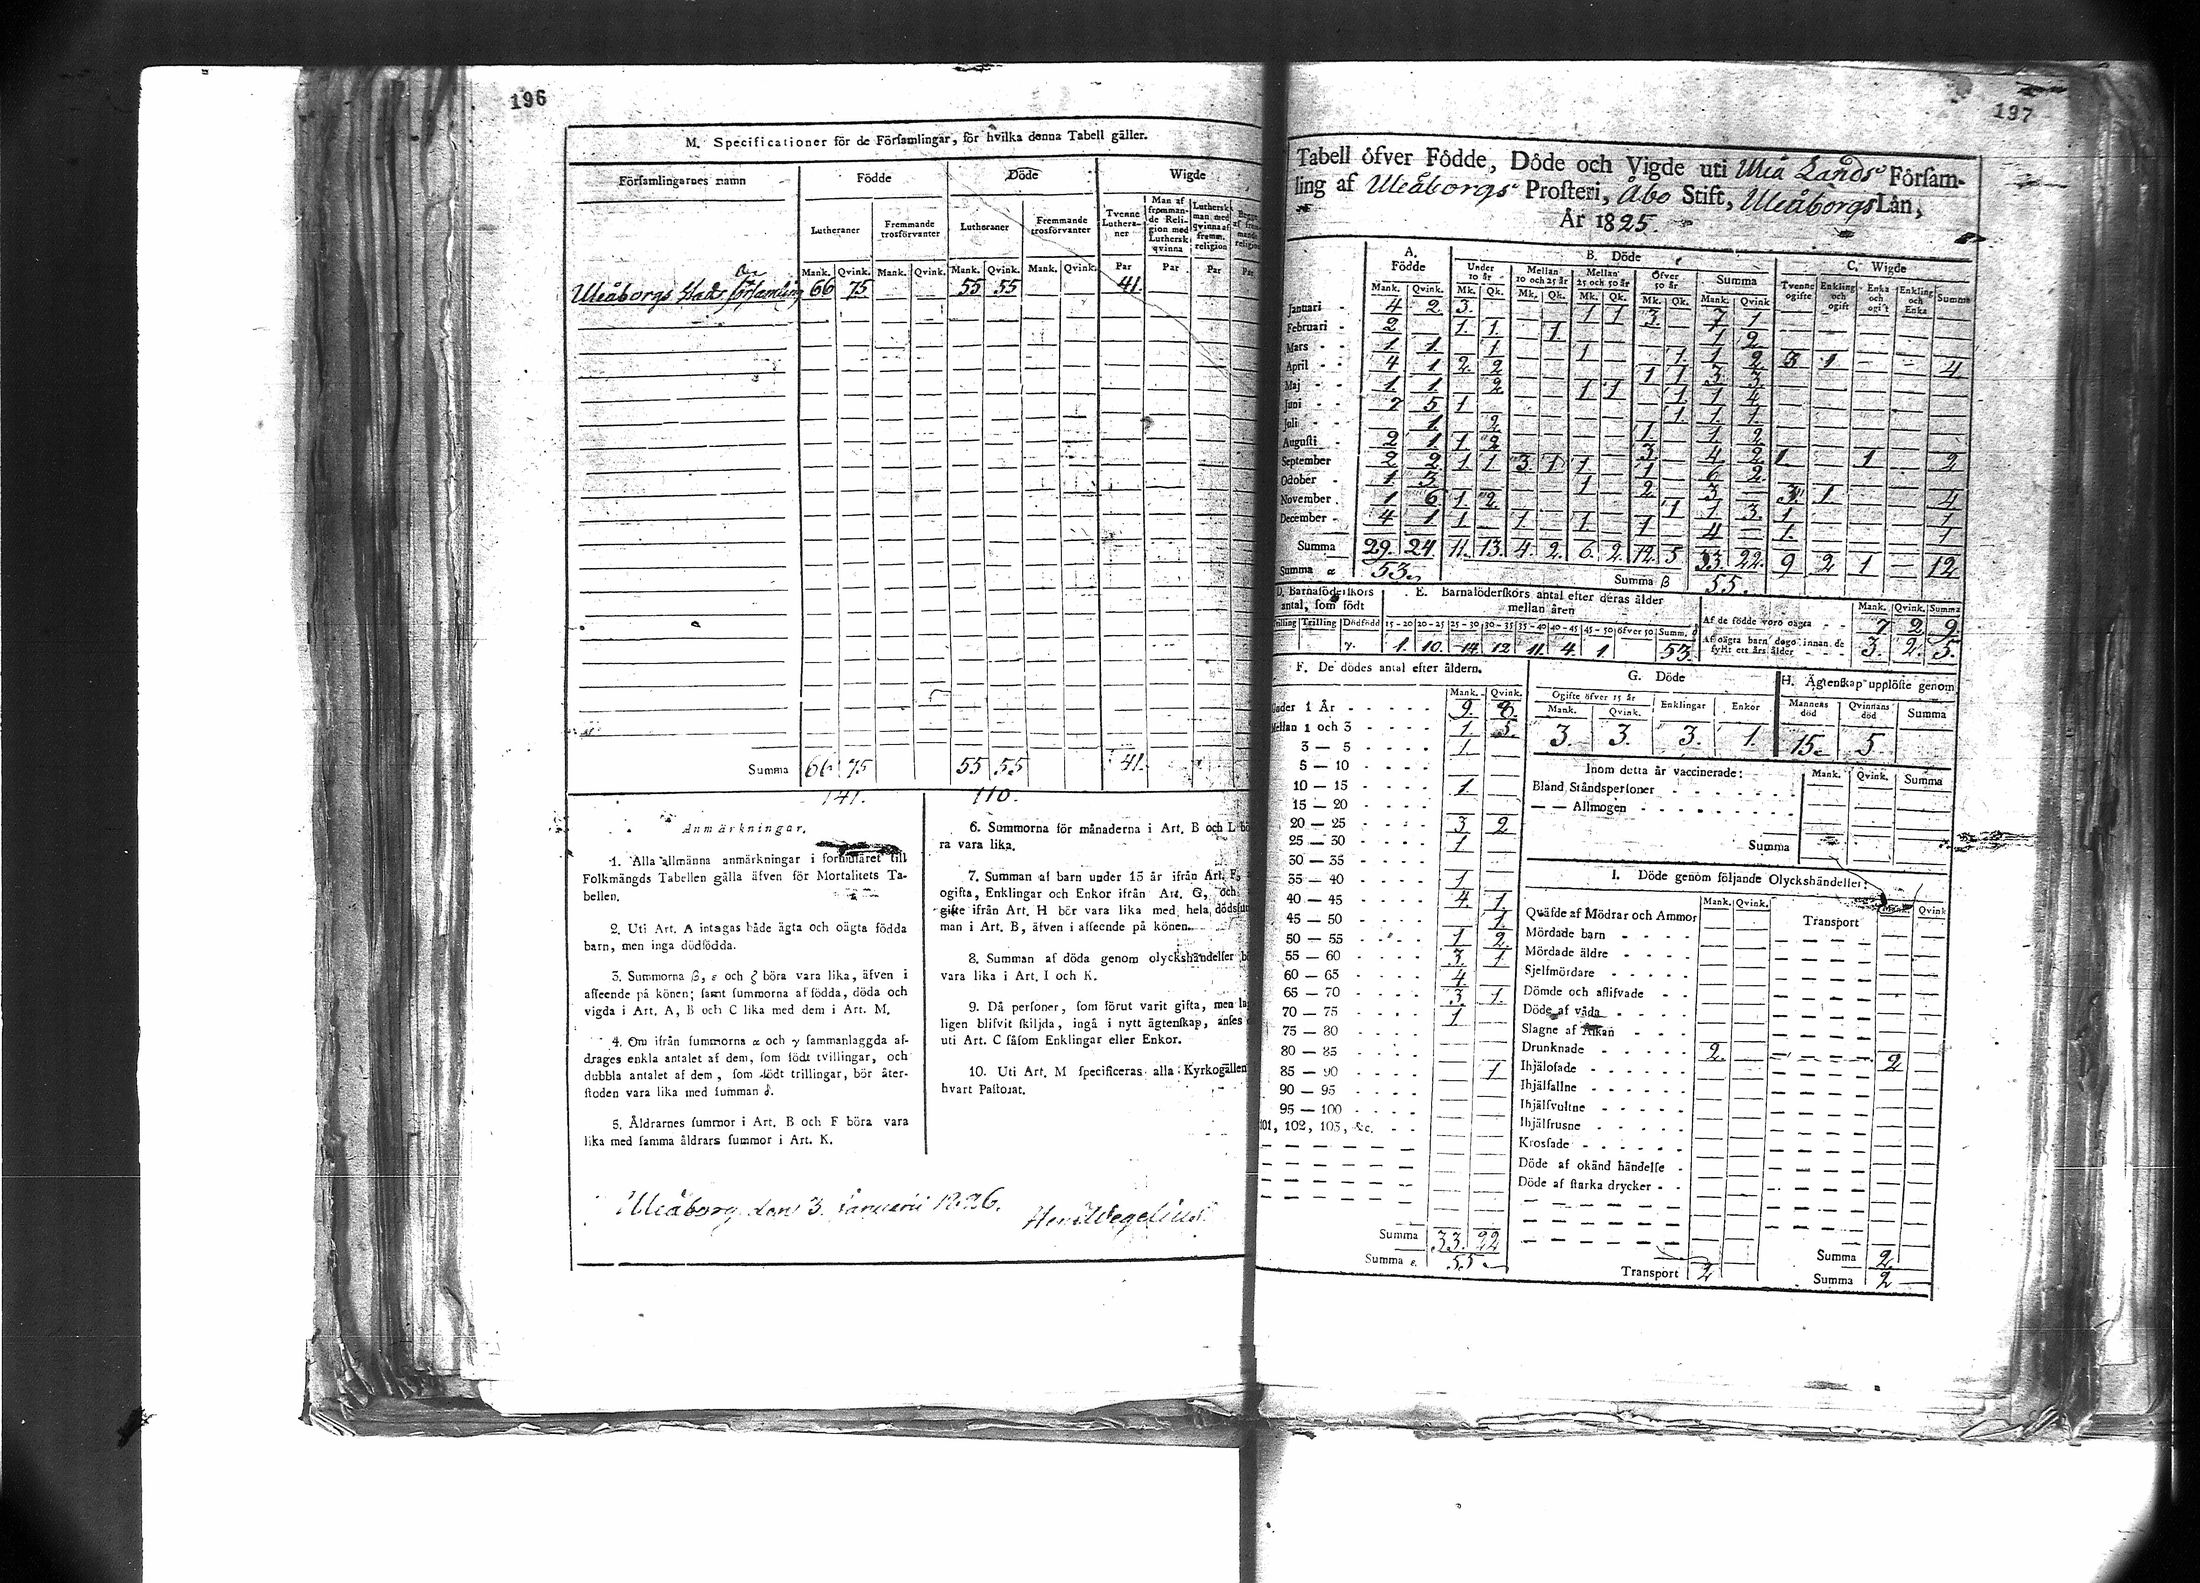 196
M. Specificationer för de Församlingar, för hvilka denna Tabell gäller.
Församlingarnes namn Födde Döde Wigde
Lutheraner Fremmande trosförvanter Lutheraner Fremmande trosförvanter Tvenne Lutheraner Man af fremmande Religion med Luthersk qvinna Luthersk man med qvinna af fremm. religion
Mank. Qvink. Mank. Qvink. Mank. Qvink. Mank. Qvink. Par Par Par Par
Uleåborgs Stads församling 66 75 55 55 41
Summa 66 75 55 55 41
141. 110.
Anmärkningar.
1. Alla allmänna anmärkningar i formuläret till
Folkmängds Tabellen gälla äfven för Mortalitets Ta-
bellen.
2. Uti Art. A intagas både ägta och oägta födda
barn, men inga dödfödda.
3. Summorna β, ε och ζ böra vara lika, äfven i
affeende på könen; samt summorna af födda, döda och
vigda i Art. A, B och C lika med dem i Art. M.
4. Om ifrån summorna α och γ sammanlaggda af-
drages enkla antalet af dem, som födt tvillingar, och
dubbla antalet af dem, som födt trillingar, bör åter-
stoden vara lika med summan δ.
5. Åldrarnes summor i Art. B och F böra vara
lika med samma åldrars summor i Art. K.
6. Summorna för månaderna i Art. B och L bö
ra vara lika.
7. Summan af barn under 15 år ifrån Art. F,
ogifta, Enklingar och Enkor ifrån Art. G, och
gifte ifrån Art. H bör vara lika med hela dödssum
man i Art. B, äfven i affeende på könen.
8. Summan af döda genom olyckshändelser b
vara lika i Art. I och K.
9. Då personer, som förut varit gifta, men la
ligen blifvit skiljda, ingå i nytt ägtenskap, anses
uti Art. C såsom Enklingar eller Enkor.
10. Uti Art. M specificeras alla Kyrkogällen
hvart Pastorat.
Uleåborg den 3 januarii 1826. Henr Wegelius
197
Tabell öfver Födde, Döde och Vigde uti Uleå Lands Församling
af Uleåborgs Prosteri, Åbo Stift, Uleåborgs Län,
År 1825.
A. Födde B. Döde C. Wigde
Under 10 år Mellan 10 och 25 år Mellan 25 och 50 år Öfver 50 år Summa Tvenne ogifte Enkling och ogift Enka och ogift Enkling och Enka Summa
Mank. Qvink. Mk. Qk. Mk. Qk. Mk. Qk. Mk. Qk. Mank. Qvink
Januari 4 2 3 1 1 3 7 1
Februari 2 1 1 1 1 2
Mars 1 1 1 1 1 1 2 3 1 4
April 4 1 2 2 1 1 3 3
Maj 1 1 2 1 1 1 1 4
Juni 2 5 1 1 1 1
Juli 1 2 1 1 2
Augusti 2 1 1 2 3 4 2
September 2 2 1 1 3 1 1 1 6 2 1 1 2
October 1 3 1 2 3 3 1 4
November 1 6 1 2 1 1 3 1 1
December 4 1 1 1 1 1 4 1 1
Summa 29. 24 11. 13. 4. 2. 6. 2. 12. 5 33 22. 9 2 1 12
Summa α 53. Summa β 55.
D. Barnaföderskors antal, som födt
Trilling Dödfödd
γ.
E. Barnaföderskors antal efter deras ålder mellan åren
15-20 20-25 25-30 30-35 35-40 40-45 45-50 öfver 50 Summ. δ
1. 10. 14 12 11. 4. 1 53
Mank. Qvink. Summa
Af de födde voro oägta 7 2 9.
Af oägta barn dogo innan de fyllt ett års ålder 3. 2. 5.
F. De dödes antal efter åldern.
Mank. Qvink.
Under 1 År 9. 8.
Mellan 1 och 3 1. 5.
3 — 5 1
5 — 10
10 — 15 1
15 — 20
20 — 25 3 2
25 — 30 1
30 — 35
35 — 40 1
40 — 45 4. 1.
45 — 50 1
50 — 55 1 2
55 — 60 3. 1
60 — 65 4
65 — 70 3 1.
70 — 75 1
75 — 80
80 — 85
85 — 90 1
90 — 95
95 — 100
101, 102, 103, &c.
Summa 33. 22
Summa ε. 55.
G. Döde
Ogifte öfver 15 år Enklingar Enkor
Mank. Qvink.
3. 3. 3. 1.
H. Ägtenskap upplöste genom
Mannens död Qvinnans död Summa
15. 5
Inom detta år vaccinerade: Mank. Qvink. Summa
Bland Ståndspersoner
— — Allmogen
Summa
I. Döde genom följande Olyckshändelser:
Mank. Qvink. Transport Mank. Qvink
Quäfde af Mödrar och Ammor
Mördade barn
Mördade äldre
Sjelfmördare
Dömde och aflifvade
Döde af våda
Slagne af Åskan
Drunknade 2. 2
Ihjälosade
Ihjälfallne
Ihjälsvultne
Ihjälfrusne
Krossade
Döde af okänd händelse
Döde af starka drycker
Transport 2
Summa 2
Summa 2